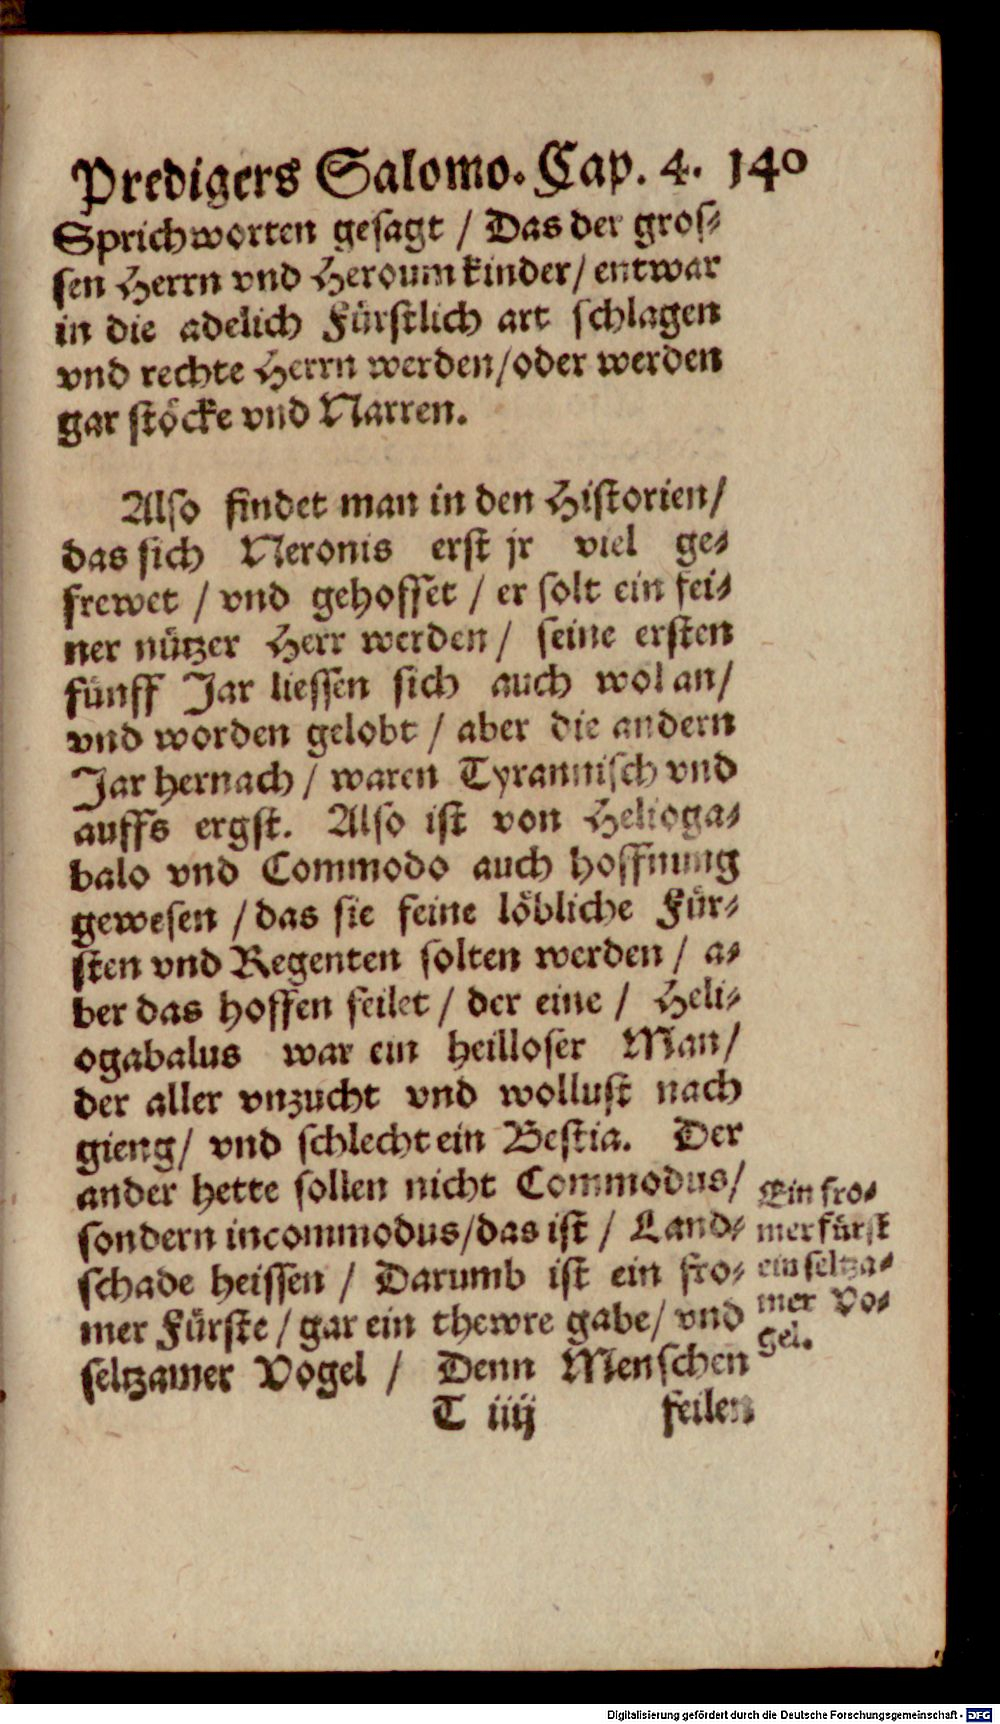 Predigers Salomo. Cap. 4. 140
Sprichworten gesagt / Das der gros-
sen Herrn vnd Heroum kinder / entwar
in die adelich Fürstlich art schlagen
vnd rechte Herrn werden / oder werden
gar stöcke vnd Narren.
Also findet man in den Historien /
das sich Neronis erst jr viel ge-
frewet / vnd gehoffet / er solt ein fei-
ner nützer Herr werden / seine ersten
fünff Jar liessen sich auch wol an /
vnd worden gelobt / aber die andern
Jar hernach / waren Tyrannisch vnd
auffs ergst. Also ist von Helioga-
balo vnd Commodo auch hoffnung
gewesen / das sie feine löbliche Für-
sten vnd Regenten solten werden / a-
ber das hoffen feilet / der eine / Heli-
ogabalus war ein heilloser Man /
der aller vnzucht vnd wollust nach
gieng / vnd schlecht ein Bestia. Der
ander hette sollen nicht Commodus /
sondern incommodus / das ist / Land-
schade heissen / Darumb ist ein fro-
mer Fürste / gar ein thewre gabe / vnd
seltzamer Vogel / Denn Menschen
Ein fro-
mer fürst
ein seltza-
mer Vo-
gel.
T iiij feilen
Digitalisierung gefördert durch die Deutsche Forschungsgemeinschaft - DFG